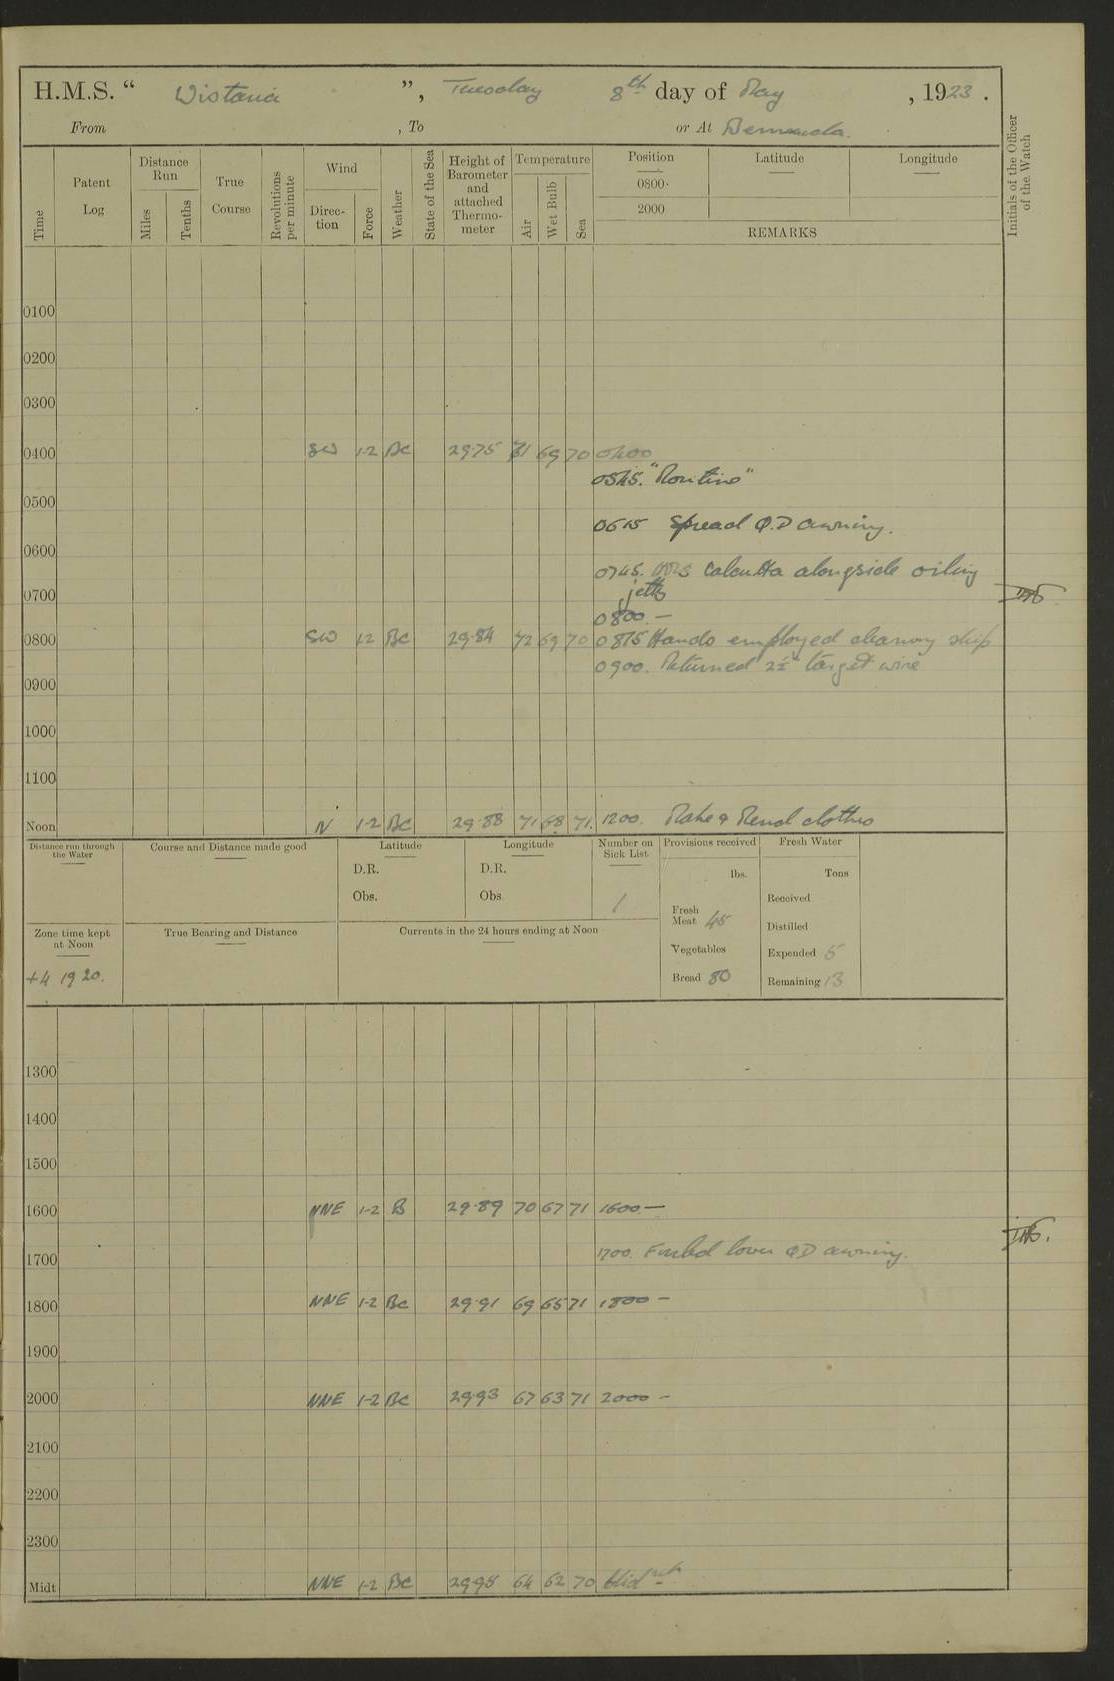 H.M.S. “ Wistaria ”, Tuesday 8th day of May , 1923 .
From , To or At Bermuda.
Time
Patent Log
Distance Run
Miles
Tenths
True Course
Revolutions per minute
Wind
Direc-tion
Force
Weather
State of the Sea
Height of Barometer and attached Thermo-meter
Temperature
Air
Wet Bulb
Sea
Position
Latitude
Longitude
0800·
2000
REMARKS
Initials of the Officer of the Watch
0100
0200
0300
0400 SW 1-2 BC 29·75 71 69 70 0400
0545. "Routine"
0500
0615 Spread Q.D awning.
0600
0745. HMS Calcutta alongside oiling
jetty
0700
0800. —
0800 SW 12 BC 29·84 72 69 70 0815 Hands employed cleaning ship
0900. Returned 2½" target wire
0900
1000
1100
Noon N 1-2 BC 29·88 71 68 71. 1200. Make & Mend clothes
Distance run through the Water
Course and Distance made good
Latitude
D.R.
Obs.
Longitude
D.R.
Obs
Number on Sick List
1
Provisions received
lbs.
Fresh Meat 45
Vegetables
Bread 80
Fresh Water
Tons
Received
Distilled
Expended 5
Remaining 13
Zone time kept at Noon
+4 1920.
True Bearing and Distance
Currents in the 24 hours ending at Noon
1300
1400
1500
1600 NNE 1-2 B 29·89 70 67 71 1600 —
1700. Furled lower QD awning.
1700
1800 NNE 1-2 BC 29·91 69 65 71 1800 —
1900
2000 NNE 1-2 BC 29·93 67 63 71 2000 —
2100
2200
2300
Midt NNE 1-2 BC 29 95 64 62 70 Midnt